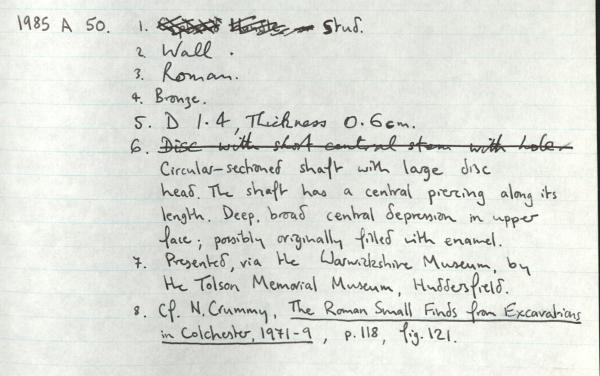 1985 A 50. 1. Stud.
2. Wall.
3. Roman.
4. Bronze.
5. D 1.4, Thickness 0.6cm.
6. Disc with short central stem with hole.
Circular-sectioned shaft with large disc
head. The shaft has a central piercing along its
length. Deep, broad central depression in upper
face; possibly originally filled with enamel.
7. Presented, via the Warwickshire Museum, by
the Tolson Memorial Museum, Huddersfield.
8. Cf. N. Crummy, The Roman Small Finds from Excavations
in Colchester, 1971-9, p.118, fig.121.